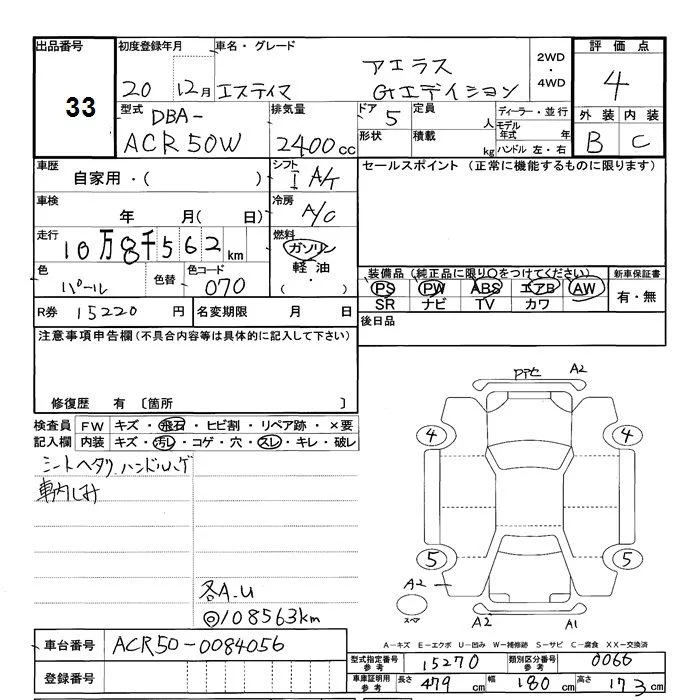 出品番号 33
初度登録年月 20 12月
車名・グレード エスティマ アエラス Gエディション
2WD ・ 4WD
評価点 4
外装 B 内装 C
型式 DBA- ACR50W
排気量 2400cc
ドア 5 形状
定員 人 積載 kg
ディーラー・並行
モデル年式 年
ハンドル 左・右
車歴 自家用・( )
シフト I A/T
セールスポイント (正常に機能するものに限ります)
車検 年 月( 日)
冷房 A/C
走行 10万8千562km
燃料 ガソリン 軽油 ( ・ )
色 パール 色替 色コード 070
装備品 (純正品に限り○をつけてください)
PS PW ABS エアB AW
SR ナビ TV カワ
新車保証書 有・無
R券 15220円 名変期限 月 日
後日品
注意事項申告欄 (不具合内容等は具体的に記入して下さい)
修復歴 有 〔箇所 〕
検査員記入欄
FW キズ・飛石・ヒビ割・リペア跡・×要
内装 キズ・汚レ・コゲ・穴・スレ・キレ・破レ
シートヘタリ ハンドルハゲ
車内しみ
各A.U
◎108563km
A2
4 4
5 5
A2
スペア
A2 A1
A-キズ E-エクボ U-凹み W-補修跡 S-サビ C-腐食 XX-交換済
車台番号 ACR50-0084056
登録番号
型式指定番号 参考 15270 類別区分番号 参考 0066
車庫証明用 参考 長さ 479cm 幅 180cm 高さ 173cm